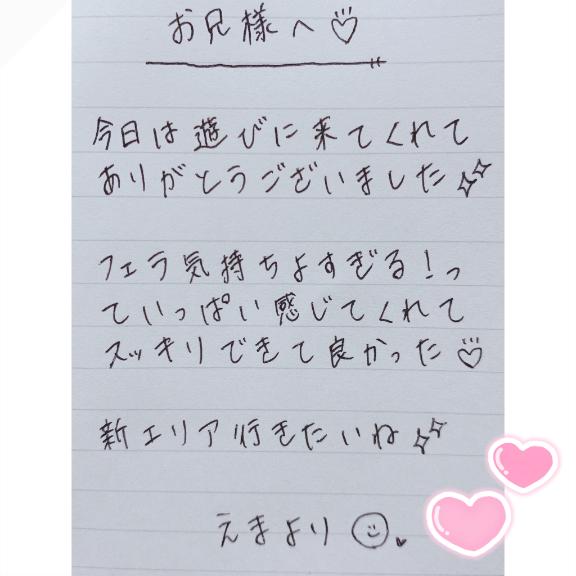 お兄様へ♡
今日は遊びに来てくれて
ありがとうございました✨
フェラ気持ちよすぎる!っ
ていっぱい感じてくれて
スッキリできて良かった♡
新エリア行きたいね✨
えまより☺♥